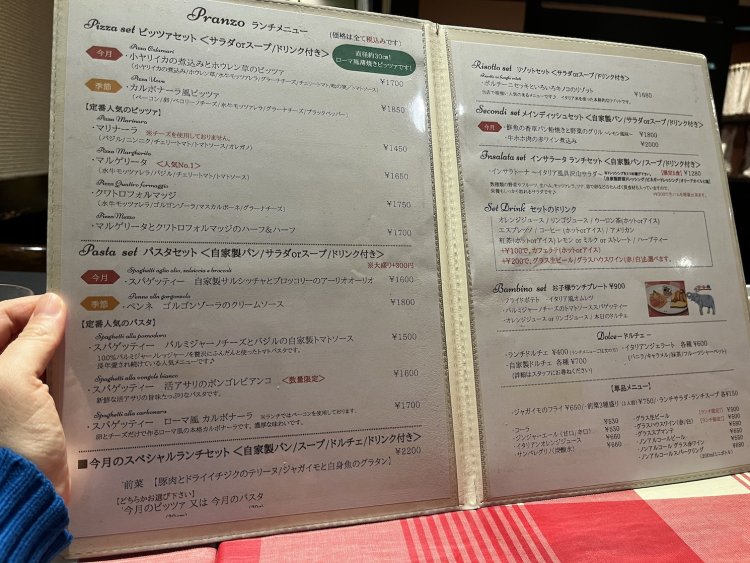 Pranzo ランチメニュー
(価格は全て税込みです)
Pizza set ピッツァセット <サラダorスープ/ドリンク付き>
直径約30cm!
ローマ風薄焼きピッツァです!
Pizza Calamari
今月 ・小ヤリイカの煮込みとホウレン草のピッツァ ¥1700
(小ヤリイカの煮込み/ホウレン草/水牛モッツァレラ/グラナーチーズ/チェリートマト/松の実/トマトソース)
季節 ・カルボナーラ風ピッツァ ¥1850
(ベーコン/卵/ペペリーノチーズ/水牛モッツァレラ/グラナーチーズ/ブラックペッパー)
【定番人気のピッツァ】
Pizza Marinara
・マリナーラ ※チーズを使用しておりません。 ¥1450
(バジル/ニンニク/チェリートマト/トマトソース/オレガノ)
Pizza Margherita
・マルゲリータ <人気No.1> ¥1650
(水牛モッツァレラ/バジル/チェリートマト/トマトソース)
Pizza Quattro formaggio
・クワトロフォルマッジ ¥1750
(水牛モッツァレラ/ゴルゴンゾーラ/マスカルポーネ/グラナーチーズ)
Pizza Mezzo
・マルゲリータとクワトロフォルマッジのハーフ&ハーフ ¥1700
Pasta set パスタセット <自家製パン/サラダorスープ/ドリンク付き>
※大盛り+300円
Spaghetti aglio olio, salsiccia e broccoli
今月 ・スパゲッティー 自家製サルシッチャとブロッコリーのアーリオオーリオ ¥1600
Penne alla gorgonzola
季節 ・ペンネ ゴルゴンゾーラのクリームソース ¥1800
【定番人気のパスタ】
Spaghetti alla pomodoro
・スパゲッティー パルミジャーノチーズとバジルの自家製トマトソース ¥1500
100%パルミジャーノレッジャーノを贅沢にふんだんと使ったトマトパスタです。
長年愛され続けている人気メニューです♪
Spaghetti alla vongole bianco
・スパゲッティー 活アサリのボンゴレビアンコ <数量限定> ¥1600
新鮮な活アサリの旨味たっぷりなパスタです。
Spaghetti alla carbonara
・スパゲッティー ローマ風 カルボナーラ ※ランチではベーコンを使用しております。 ¥1700
卵とチーズだけで作るローマ風の本格カルボナーラです。濃厚な味わいです。
■今月のスペシャルランチセット <自家製パン/スープ/ドルチェ/ドリンク付き> ¥2200
前菜 【豚肉とドライイチジクのテリーヌ/ジャガイモと白身魚のグラタン】
【どちらかお選び下さい】
今月のピッツァ 又は 今月のパスタ
Risotto set リゾットセット <サラダorスープ/ドリンク付き>
Risotto ai funghi misti
・ポルチーニセッといろいろキノコのリゾット ¥1680
Secondi set メインディッシュセット <自家製パン/サラダorスープ/ドリンク付き>
今月 ・鮮魚の香草パン粉焼きと野菜のグリル ~レモン風味~ ¥1800
・牛ホホ肉の赤ワイン煮込み ¥2000
Insalata set インサラータ ランチセット <自家製パン/スープ/ドリンク付き>
・インサラトーナ ~イタリア風具沢山サラダ~ ¥1280
Set Drink セットのドリンク
オレンジジュース / リンゴジュース / ウーロン茶(ホットorアイス)
エスプレッソ / コーヒー (ホットorアイス) / アメリカン
紅茶(ホットorアイス) レモン or ミルク or ストレート / ハーブティー
+¥100で、カフェラテ(ホットorアイス)
+¥200で、グラス生ビール/グラスハウスワイン(赤/白)も選べます。
Bambino set お子様ランチプレート ¥900
・フライドポテト ・イタリア風オムレツ
・パルミジャーノチーズのトマトソーススパゲッティー
・オレンジジュース or リンゴジュース / 本日のドルチェ
Dolce~ドルチェ~
・ランチドルチェ ¥400 (ランチメニューご注文の方)
・自家製ドルチェ 各種 ¥700
(詳細はスタッフにお尋ねください)
・イタリアンジェラート 各種 ¥600
(バニラ/キャラメル/抹茶/フルーツシャーベット)
【単品メニュー】
・ジャガイモのフライ ¥650/・前菜3種盛り(1人前) ¥750/・ランチサラダ・ランチスープ 各¥150
・コーラ ¥530
・ジンジャーエール (甘口/辛口) ¥530
・イタリアンオレンジジュース ¥660
・サンペレグリノ(炭酸水) ¥660
・グラス生ビール
・グラスハウスワイン(赤/白)
・グラススプマンテ
・ノンアルコールビール
・ノンアルコール グラス赤ワイン
・ノンアルコールスパークリング